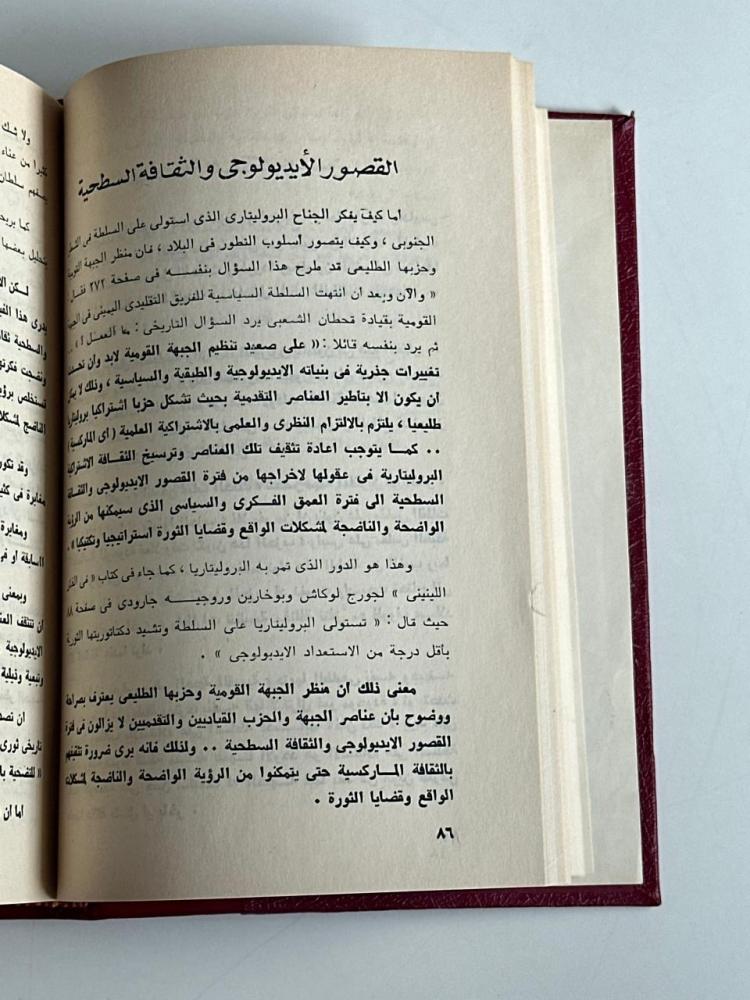 القصور الأيديولوجى والثقافة السطحية
أما كيف يفكر الجناح البروليتارى الذى استولى على السلطة فى
الجنوبى ، وكيف يتصور أسلوب التطور فى البلاد ، فان منظر الجبهة القومية
وحزبها الطليعى قد طرح هذا السؤال بنفسه فى صفحة ٢٧٢ فقال
« والآن وبعد ان انتهت السلطة السياسية للفريق التقليدى اليمينى فى الجبهة
القومية بقيادة قحطان الشعبى يرد السؤال التاريخى : ما العمل ! ..
ثم يرد بنفسه قائلا : « على صعيد تنظيم الجبهة القومية لابد وأن تحدث
تغييرات جذرية فى بنياته الايديولوجية والطبقية والسياسية ، وذلك لا يمكن
أن يكون الا بتاطير العناصر التقدمية بحيث تشكل حزبا اشتراكيا بروليتاريا
طليعيا ، يلتزم بالالتزام النظرى والعلمى بالاشتراكية العلمية ( أى الماركسية )
.. كما يتوجب اعادة تثقيف تلك العناصر وترسيخ الثقافة الاشتراكية
البروليتارية فى عقولها لاخراجها من فترة القصور الايديولوجى والثقافة
السطحية الى فترة العمق الفكرى والسياسى الذى سيمكنها من الرؤية
الواضحة والناضجة لمشكلات الواقع وقضايا الثورة استراتيجيا وتكتيكيا » .
وهذا هو الدور الذى تمر به البروليتاريا ، كما جاء فى كتاب « فى الفكر
اللينينى » لجورج لوكاش وبوخارين وروجيه جارودى فى صفحة ٨٨
حيث قال : « تستولى البروليتاريا على السلطة وتشيد دكتاتوريتها الثورة
بأقل درجة من الاستعداد الايديولوجى » .
معنى ذلك أن منظر الجبهة القومية وحزبها الطليعى يعترف بصراحة
ووضوح بأن عناصر الجبهة والحزب القياديين والتقدميين لا يزالون فى فترة
القصور الايديولوجى والثقافة السطحية .. ولذلك فانه يرى ضرورة تثقيفهم
بالثقافة الماركسية حتى يتمكنوا من الرؤية الواضحة والناضجة لمشكلات
الواقع وقضايا الثورة .
٨٦